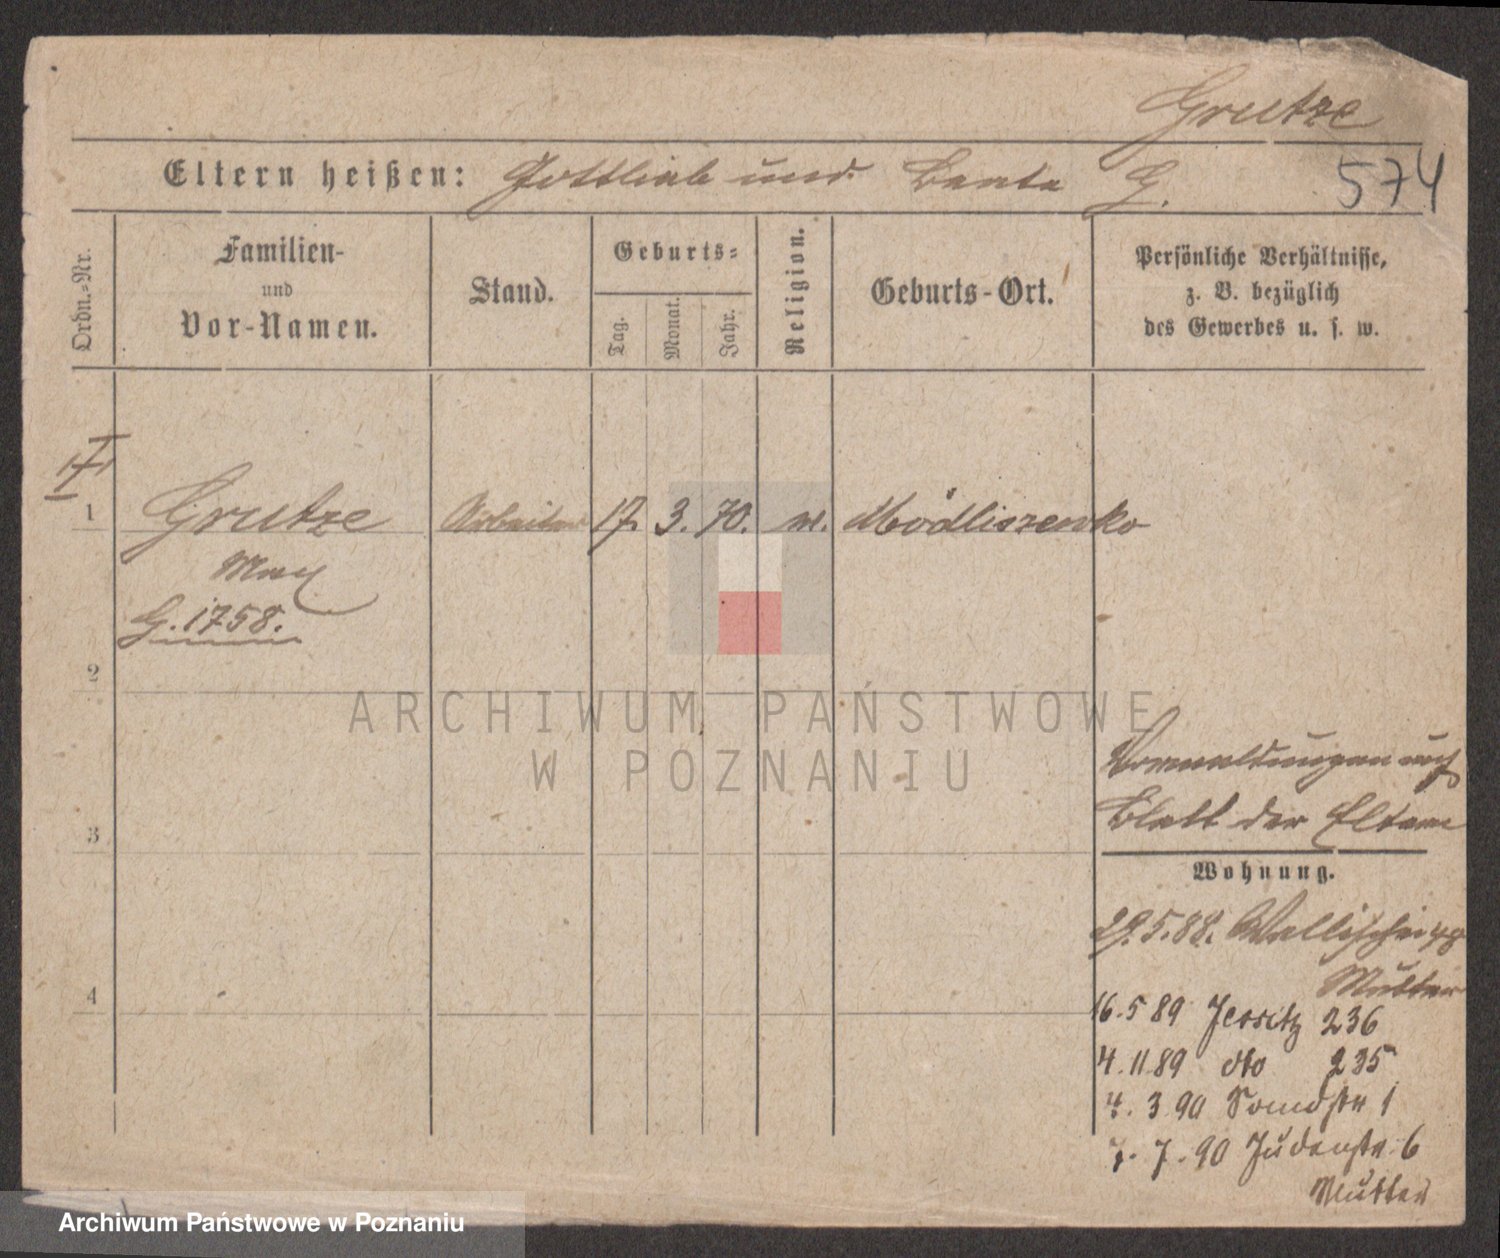 Grutze
574
Eltern heißen: Gottlieb und Beate G.
Ordn.-Nr.
Familien-
und
Vor-Namen.
Stand.
Geburts-
Tag.
Monat.
Jahr.
Religion.
Geburts-Ort.
Persönliche Verhältnisse,
z. B. bezüglich
des Gewerbes u. s. w.
1 Grutze Arbeiter 17. 3. 70. Módliszewko
Max
G. 1758.
2
3
4
ARCHIWUM PAŃSTWOWE
W POZNANIU
Blatt der Eltern
Wohnung.
29.5.88. Wallischei
Mutter
16.5 89 Jersitz 236
4.11 89 dto 235
4. 3 90 1
7. 7. 90 Judenstr. 6
Mutter
Archiwum Państwowe w Poznaniu